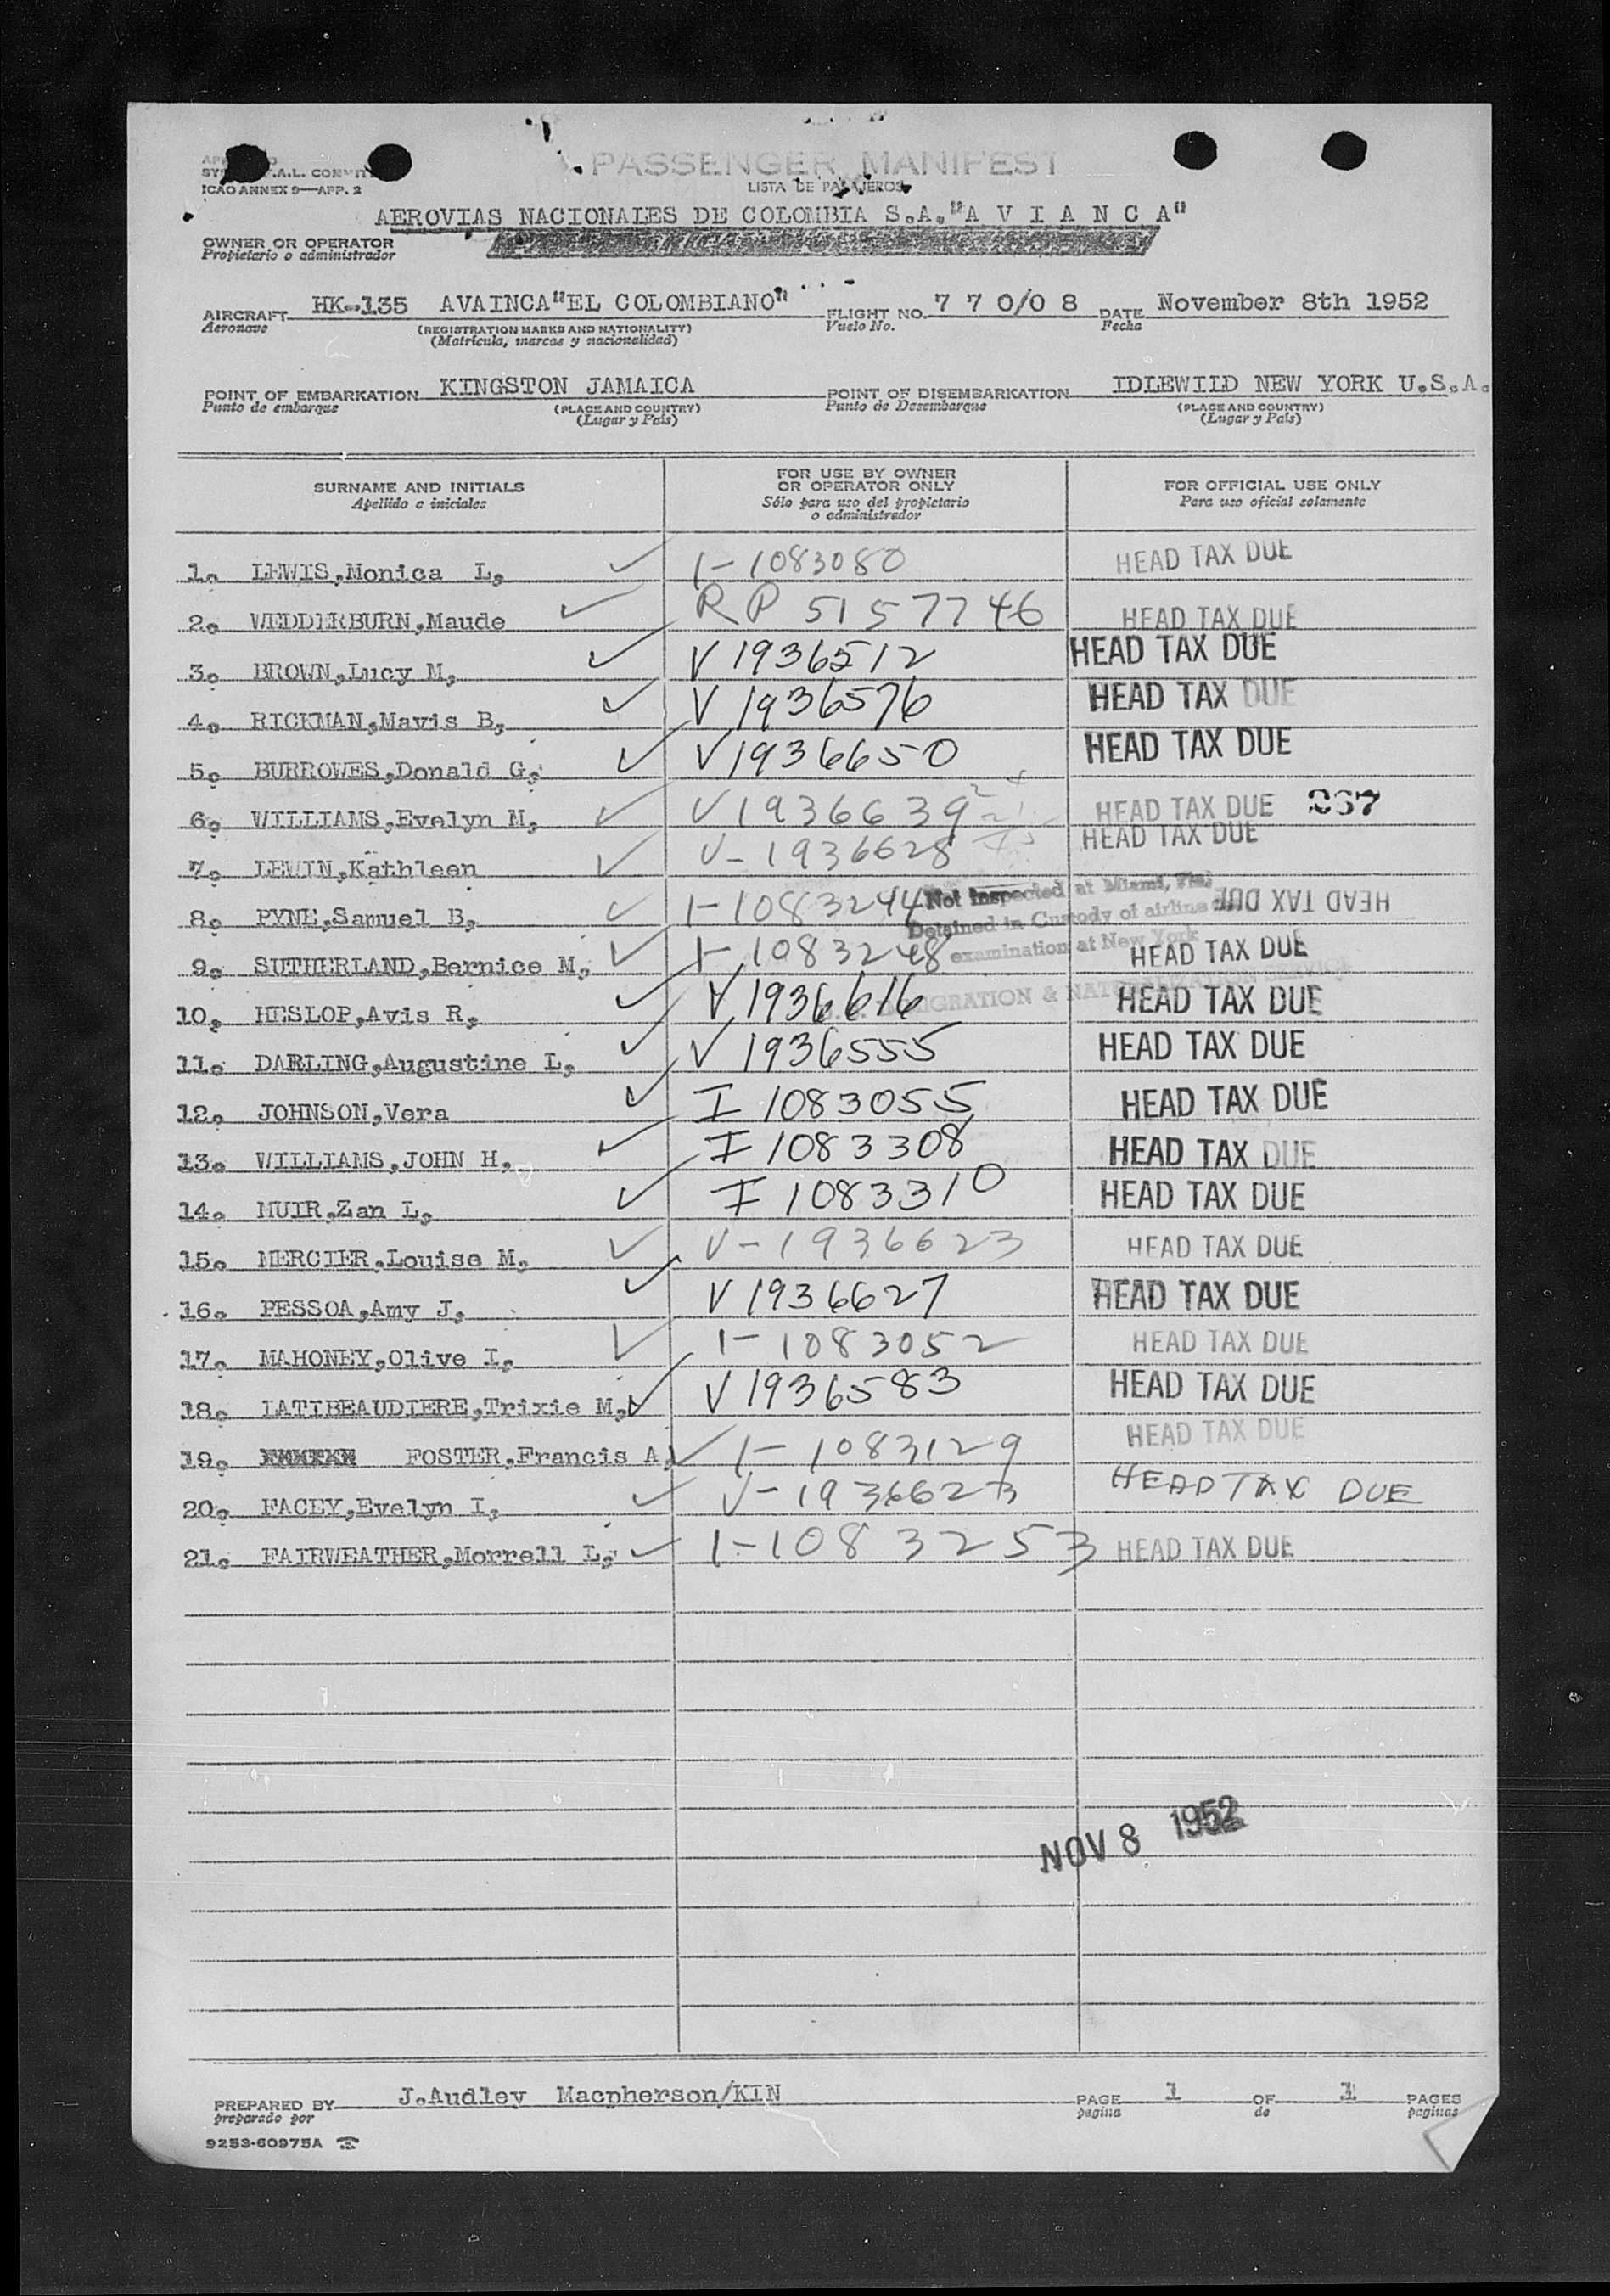 PASSENGER MANIFEST
LISTA DE PASAJEROS
ICAO ANNEX 9—APP. 2
AEROVIAS NACIONALES DE COLOMBIA S.A."A V I A N C A"
OWNER OR OPERATOR
Propietario o administrador
AIRCRAFT HK-135 AVAINCA"EL COLOMBIANO" FLIGHT NO. 7 7 0/0 8 DATE November 8th 1952
Aeronave (REGISTRATION MARKS AND NATIONALITY) Vuelo No. Fecha
(Matricula, marcas y nacionalidad)
POINT OF EMBARKATION KINGSTON JAMAICA POINT OF DISEMBARKATION IDLEWILD NEW YORK U.S.A.
Punto de embarque (PLACE AND COUNTRY) Punto de Desembarque (PLACE AND COUNTRY)
(Lugar y Pais) (Lugar y Pais)
SURNAME AND INITIALS FOR USE BY OWNER OR OPERATOR ONLY FOR OFFICIAL USE ONLY
Apellido e iniciales Sólo para uso del propietario o administrador Para uso oficial solamente
1. LEWIS,Monica L, I-1083080 HEAD TAX DUE
2. WEDDERBURN,Maude RP 5157746 HEAD TAX DUE
3. BROWN,Lucy M, V 1936512 HEAD TAX DUE
4. RICKMAN,Mavis B, V 1936576 HEAD TAX DUE
5. BURROWES,Donald G, V 1936650 HEAD TAX DUE
6. WILLIAMS,Evelyn M, V 1936639 HEAD TAX DUE 267
7. LEWIN,Kathleen V-1936628 HEAD TAX DUE
8. PYNE,Samuel B, I-1083244 HEAD TAX DUE
Not Inspected at Miami, Fla.
Detained in Custody of airline
examination at New York
IMMIGRATION & NATURALIZATION SERVICE
9. SUTHERLAND,Bernice M, I-1083248 HEAD TAX DUE
10. HESLOP,Avis R, V 1936616 HEAD TAX DUE
11. DARLING,Augustine L, V 1936555 HEAD TAX DUE
12. JOHNSON,Vera I 1083055 HEAD TAX DUE
13. WILLIAMS,JOHN H, I 1083308 HEAD TAX DUE
14. MUIR,Zan L, I 1083310 HEAD TAX DUE
15. MERCIER,Louise M, V-1936623 HEAD TAX DUE
16. PESSOA,Amy J, V 1936627 HEAD TAX DUE
17. MAHONEY,Olive I, I-1083052 HEAD TAX DUE
18. LATIBEAUDIERE,Trixie M, V 1936583 HEAD TAX DUE
19. FOSTER,Francis A, I-1083129 HEAD TAX DUE
20. FACEY,Evelyn I, V-1936623 HEAD TAX DUE
21. FAIRWEATHER,Morrell L, I-1083253 HEAD TAX DUE
NOV 8 1952
PREPARED BY J.Audley Macpherson/KIN PAGE 1 OF 1 PAGES
preparado por pagina de paginas
9253-60975A